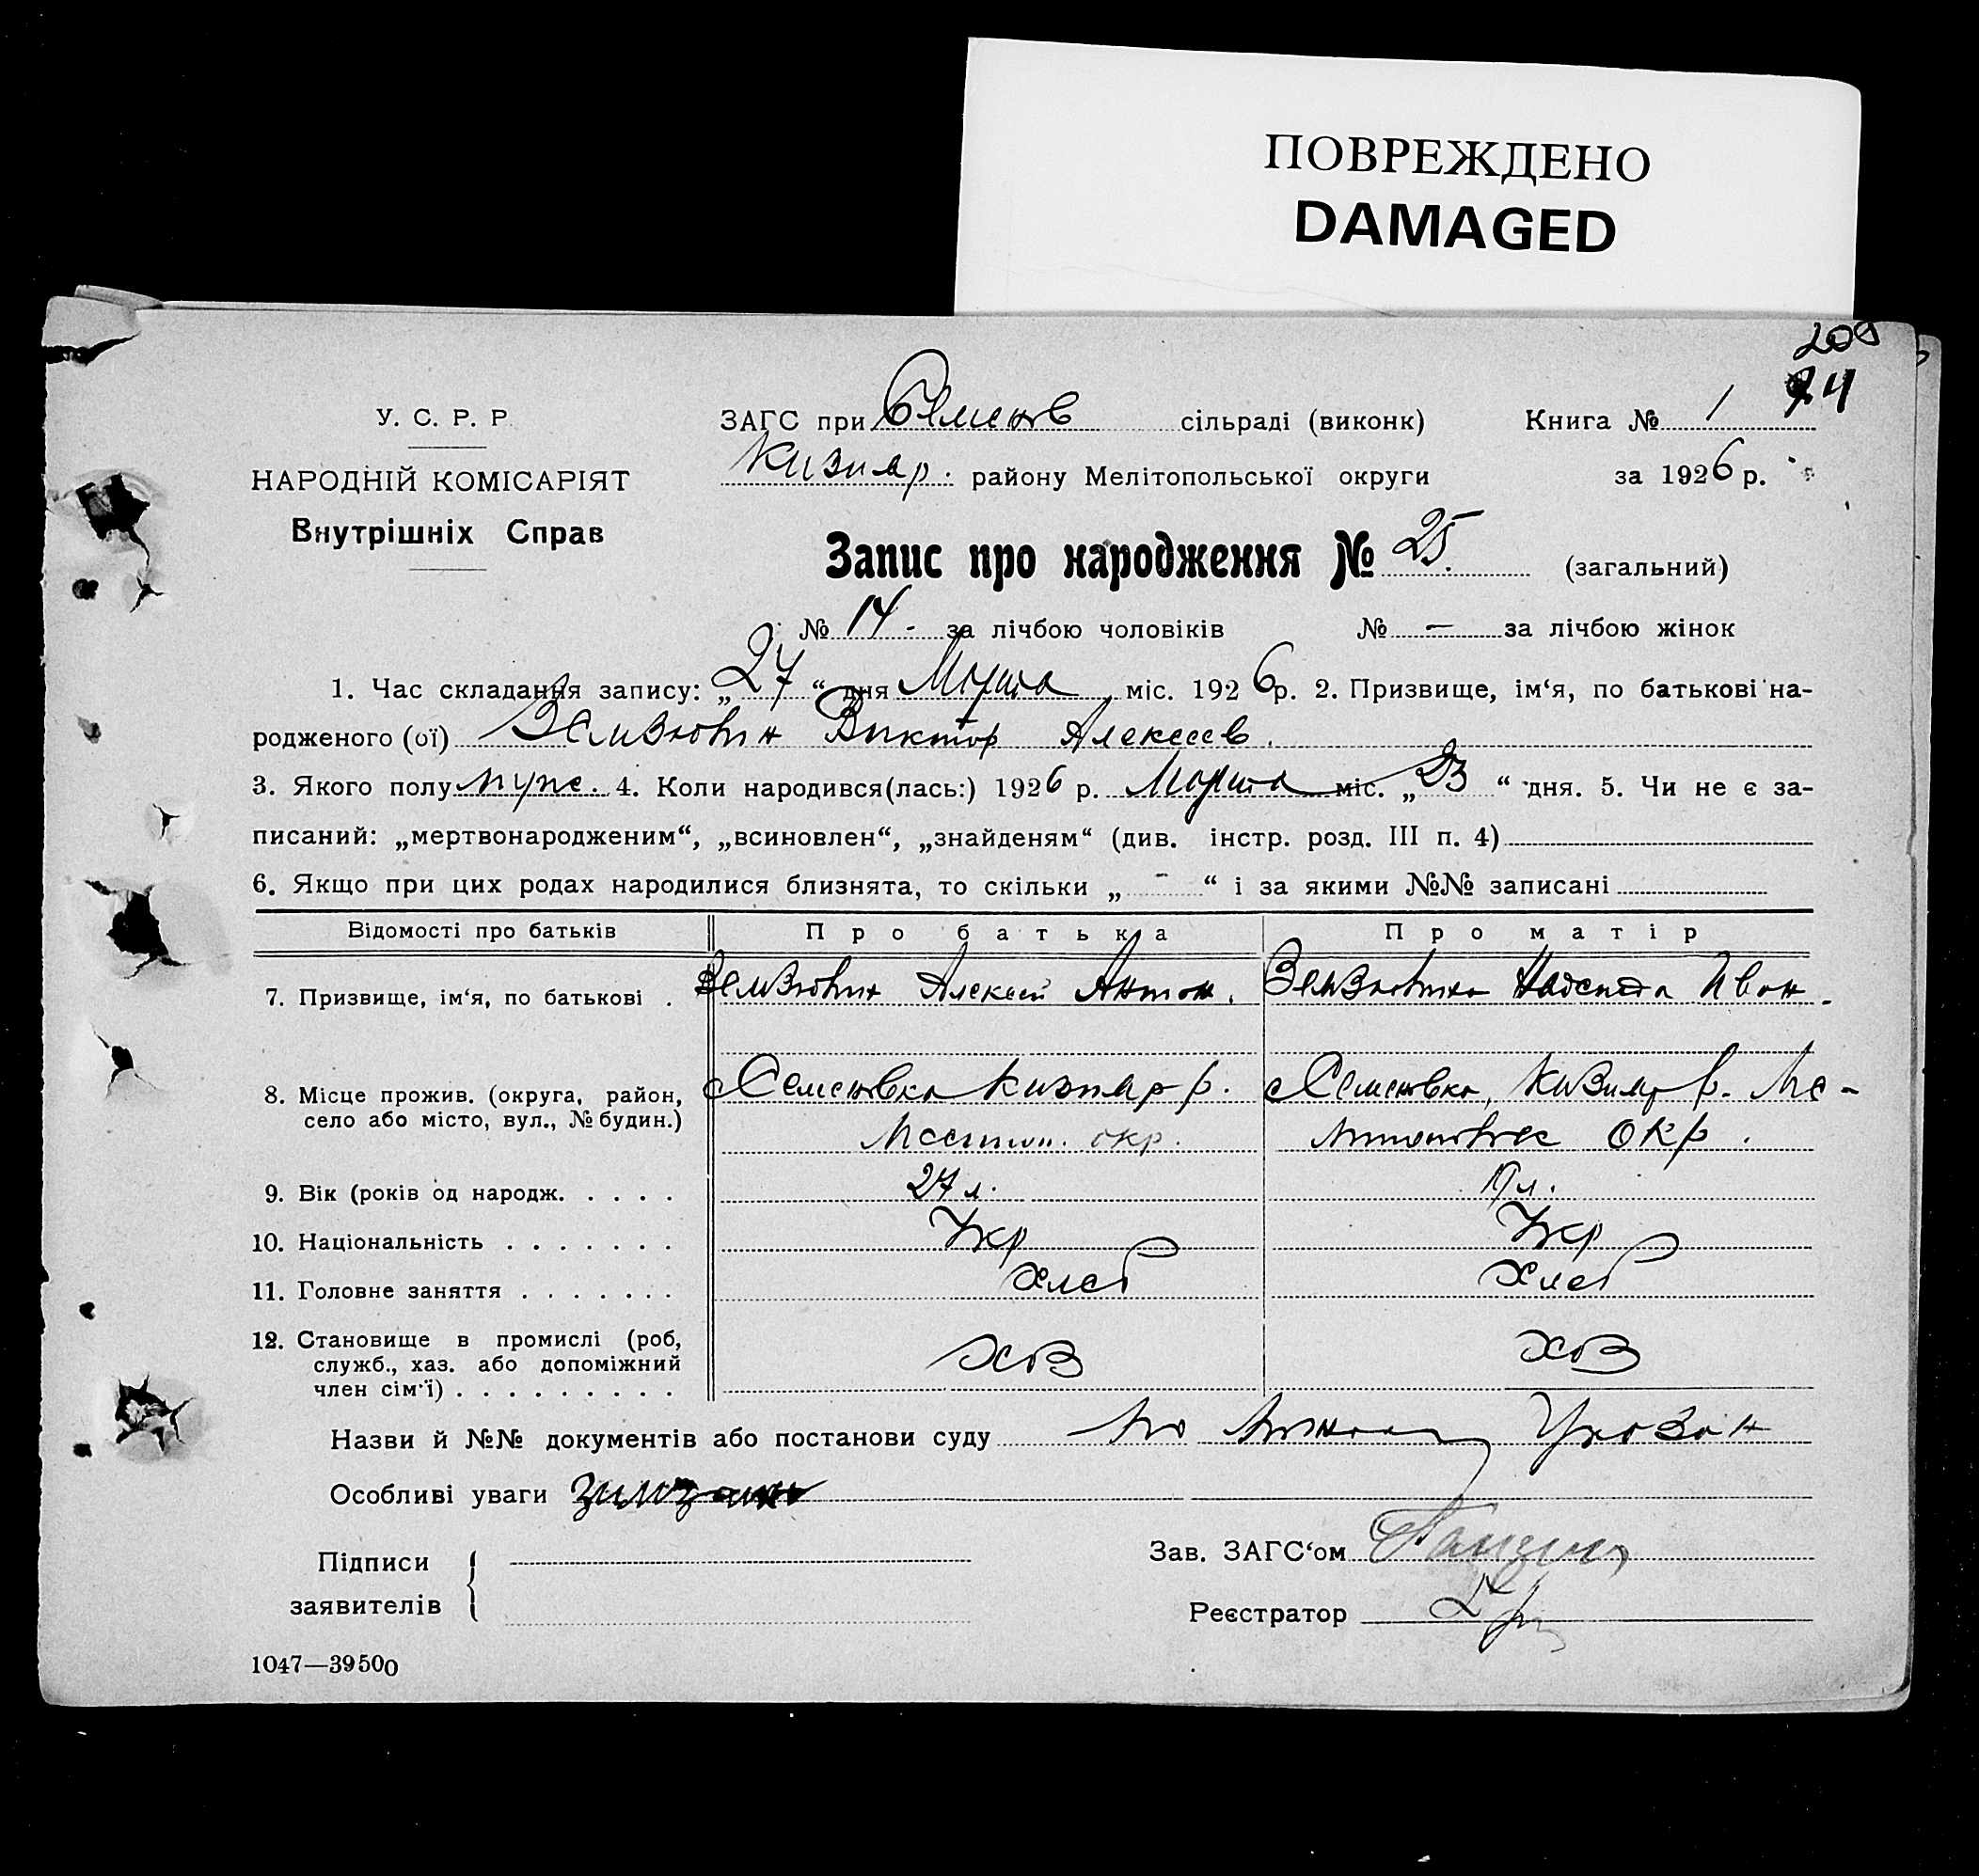 ПОВРЕЖДЕНО
DAMAGED
209
У. С. Р. Р.
НАРОДНІЙ КОМІСАРІЯТ
Внутрішніх Справ
ЗАГС при Семенов сільраді (виконк) Книга № 1
Кизияр. району Мелітопольської округи за 1926 р.
Запис про народження № 25. (загальний)
№ 14 - за лічбою чоловіків № — за лічбою жінок
1. Час складання запису: „27“ дня Марта міс. 1926 р. 2. Призвище, ім‘я, по батькові на-
родженого (ої) Виктор Алексеев.
3. Якого полу муж. 4. Коли народився(лась:) 1926 р. Марта міс. „23“ дня. 5. Чи не є за-
писаний: „мертвонародженим“, „всиновлен“, „знайденям“ (див. інстр. розд. III п. 4)
6. Якщо при цих родах народилися близнята, то скільки „-“ і за якими №№ записані
Відомості про батьків Про батька Про матір
7. Призвище, ім‘я, по батькові . Алексей Антон. Надежда Иван.
8. Місце прожив. (округа, район, с Семеновка Кизияр р. с Семеновка, Кизияр р. Ме-
село або місто, вул., № будин.) окр. окр.
9. Вік (років од народж. . . . . 27 л.
10. Національність . . . . . . . Укр Укр
11. Головне заняття . . . . . . . хлеб хлеб
12. Становище в промислі (роб,
служб., хаз. або допоміжний хоз хоз
член сім‘ї) . . . . . . . . .
Назви й №№ документів або постанови суду
Особливі уваги
Підписи
заявителів
Зав. ЗАГС‘ом
Реєстратор
1047—39500